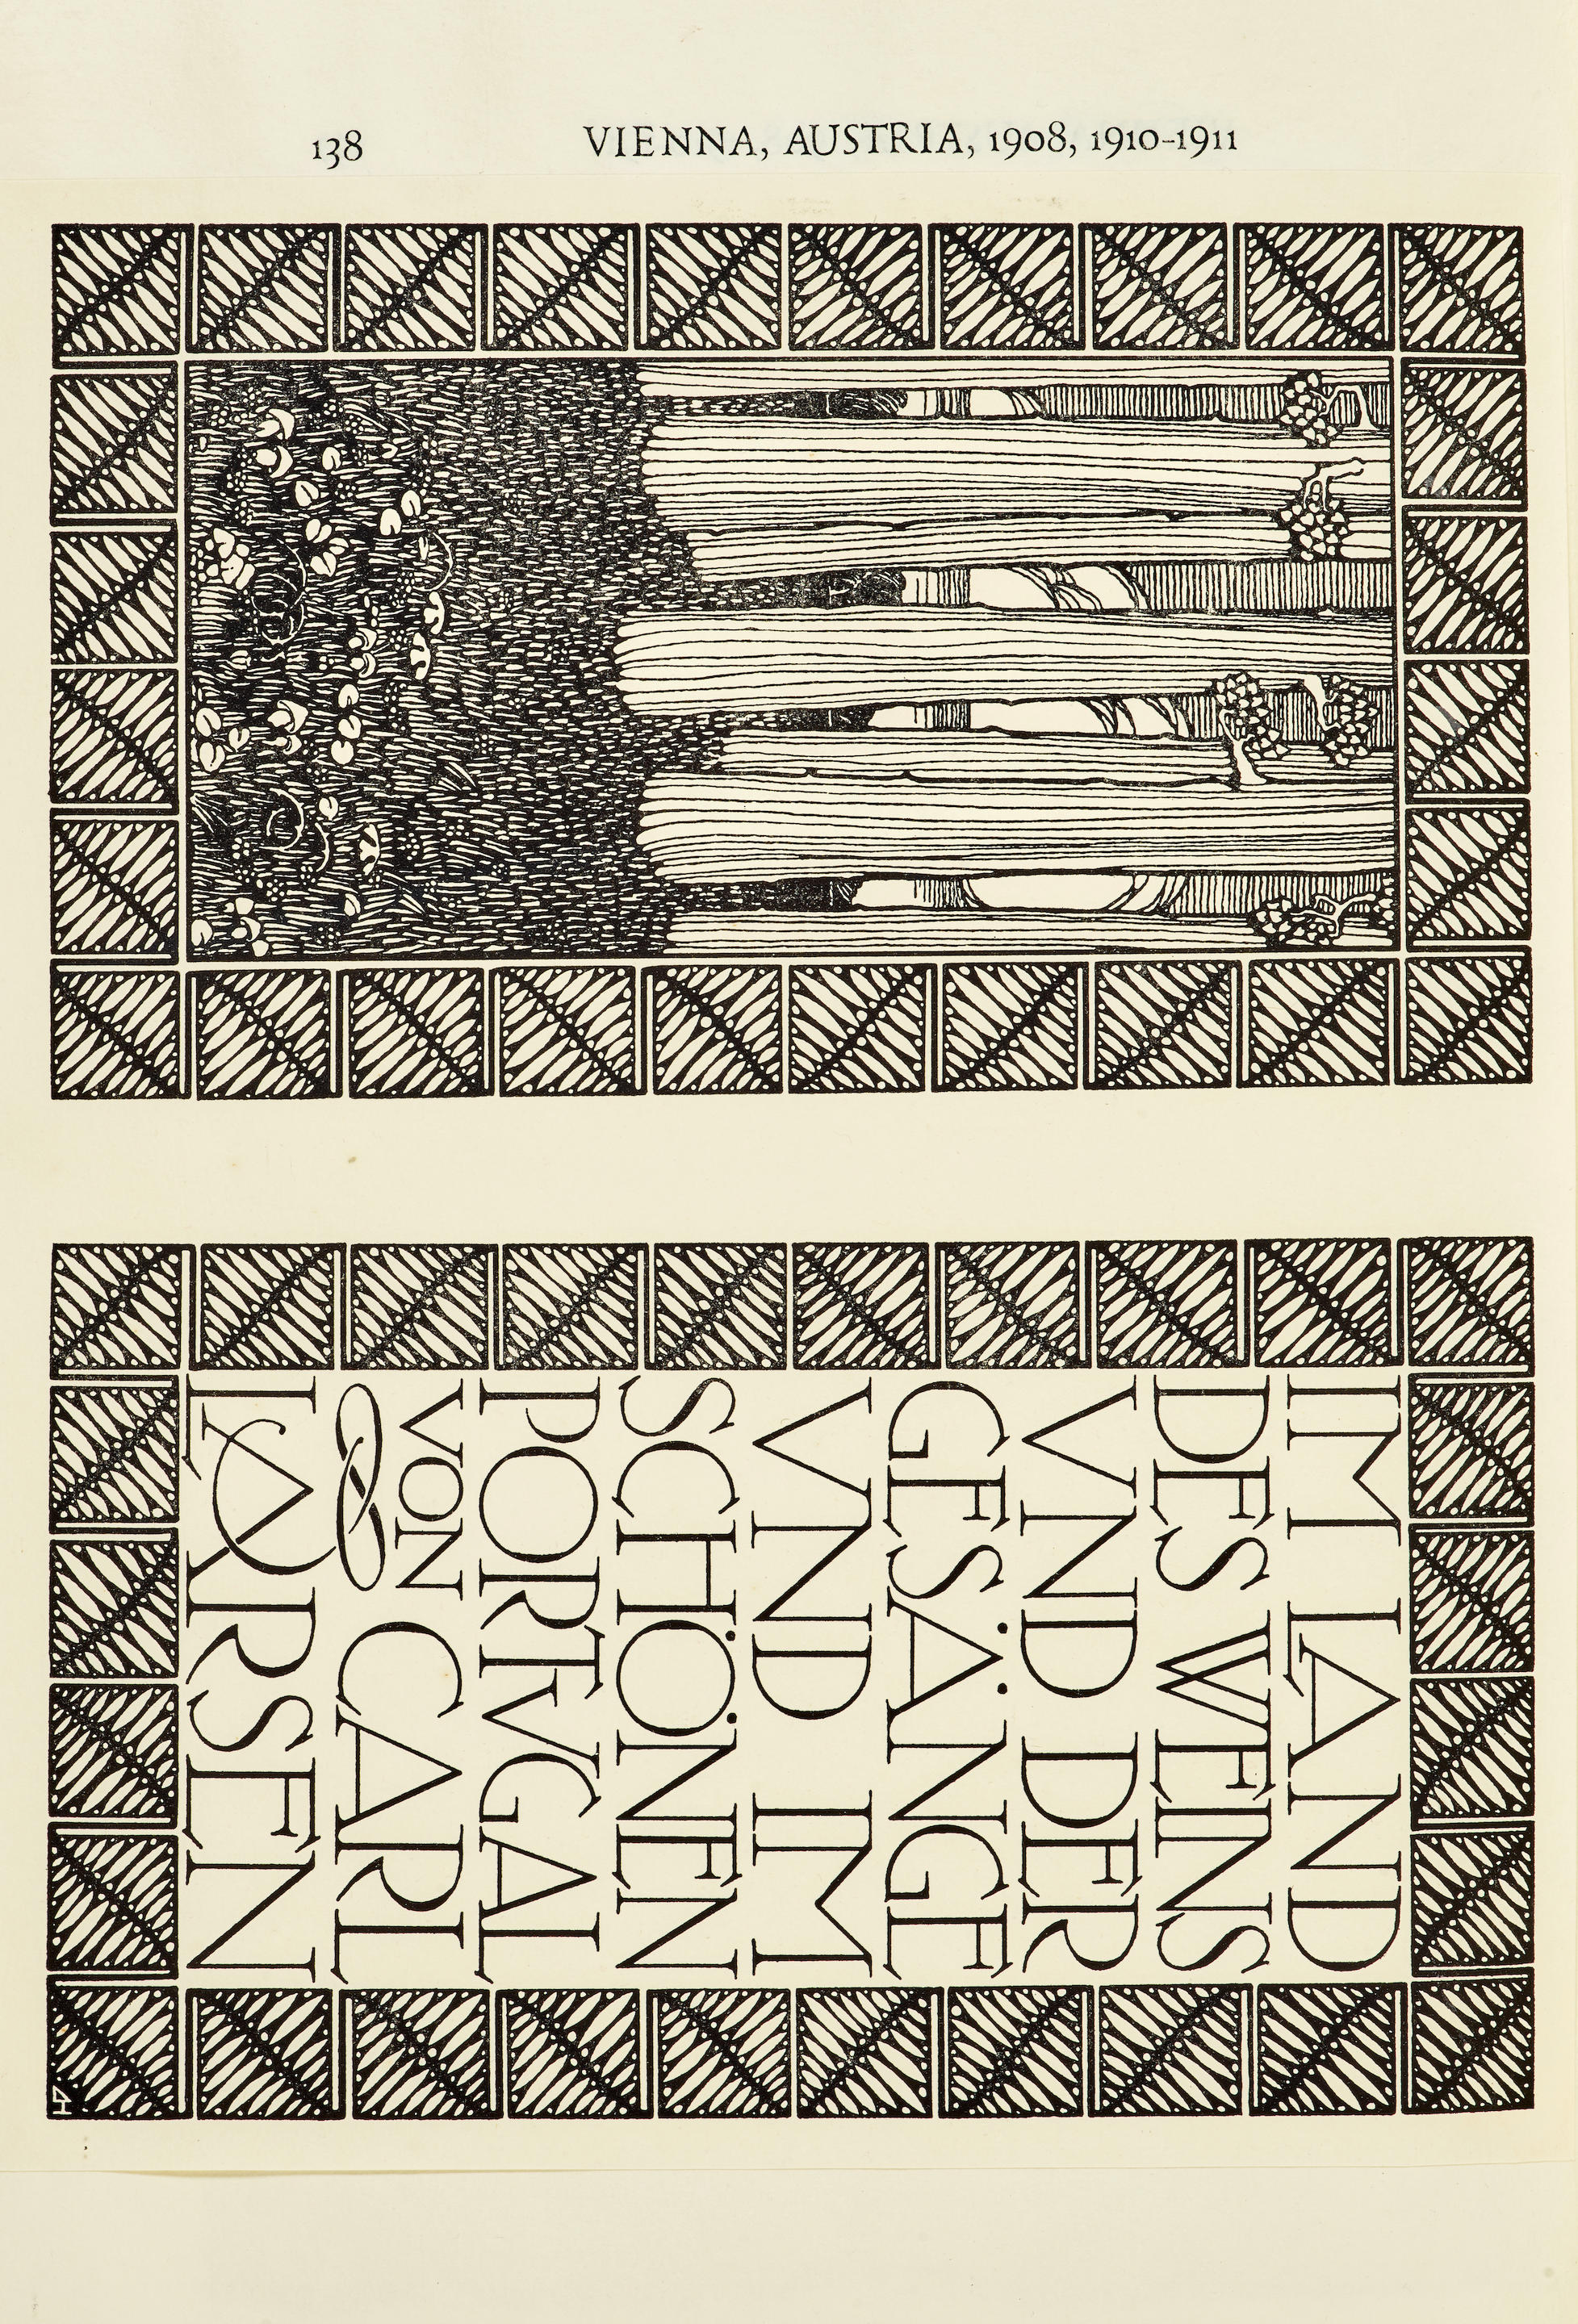 138 VIENNA, AUSTRIA, 1908, 1910-1911
IM LAND
DES WEINS
VND DER
GESÄNGE
VND IM
SCHÖNEN
PORTVGAL
VON CARL
LARSEN